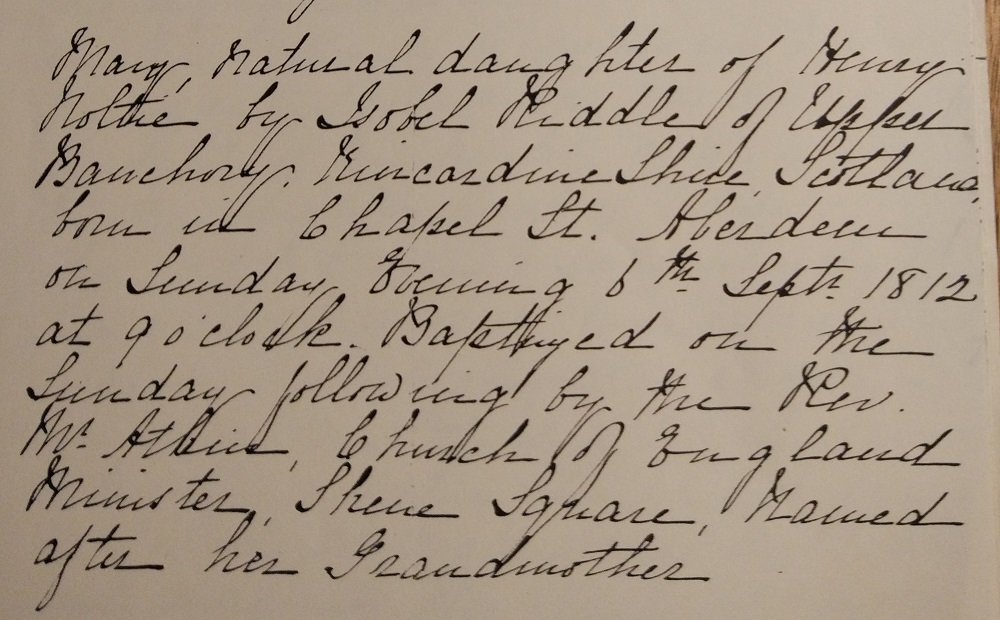 Mary, natural daughter of Henry
Noltie by Isobel Riddle of Upper
Banchory. Kincardine Shire, Scotland,
born in Chapel St. Aberdeen
on Sunday Evening 6th Septr. 1812
at 9 o'clock. Baptized on the
Sunday following by the Rev.
Mr. Atkin, Church of England
Minister, Skene Square, Named
after her Grandmother